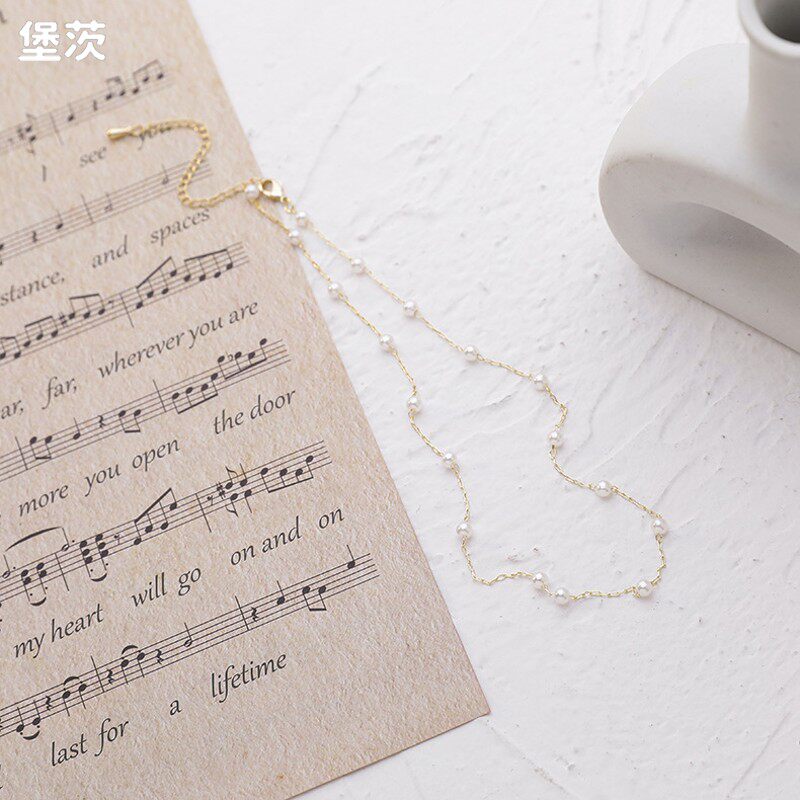 堡茨
I see you
stance, and spaces
ar, far, wherever you are
more you open the door
my heart will go on and on
last for a lifetime